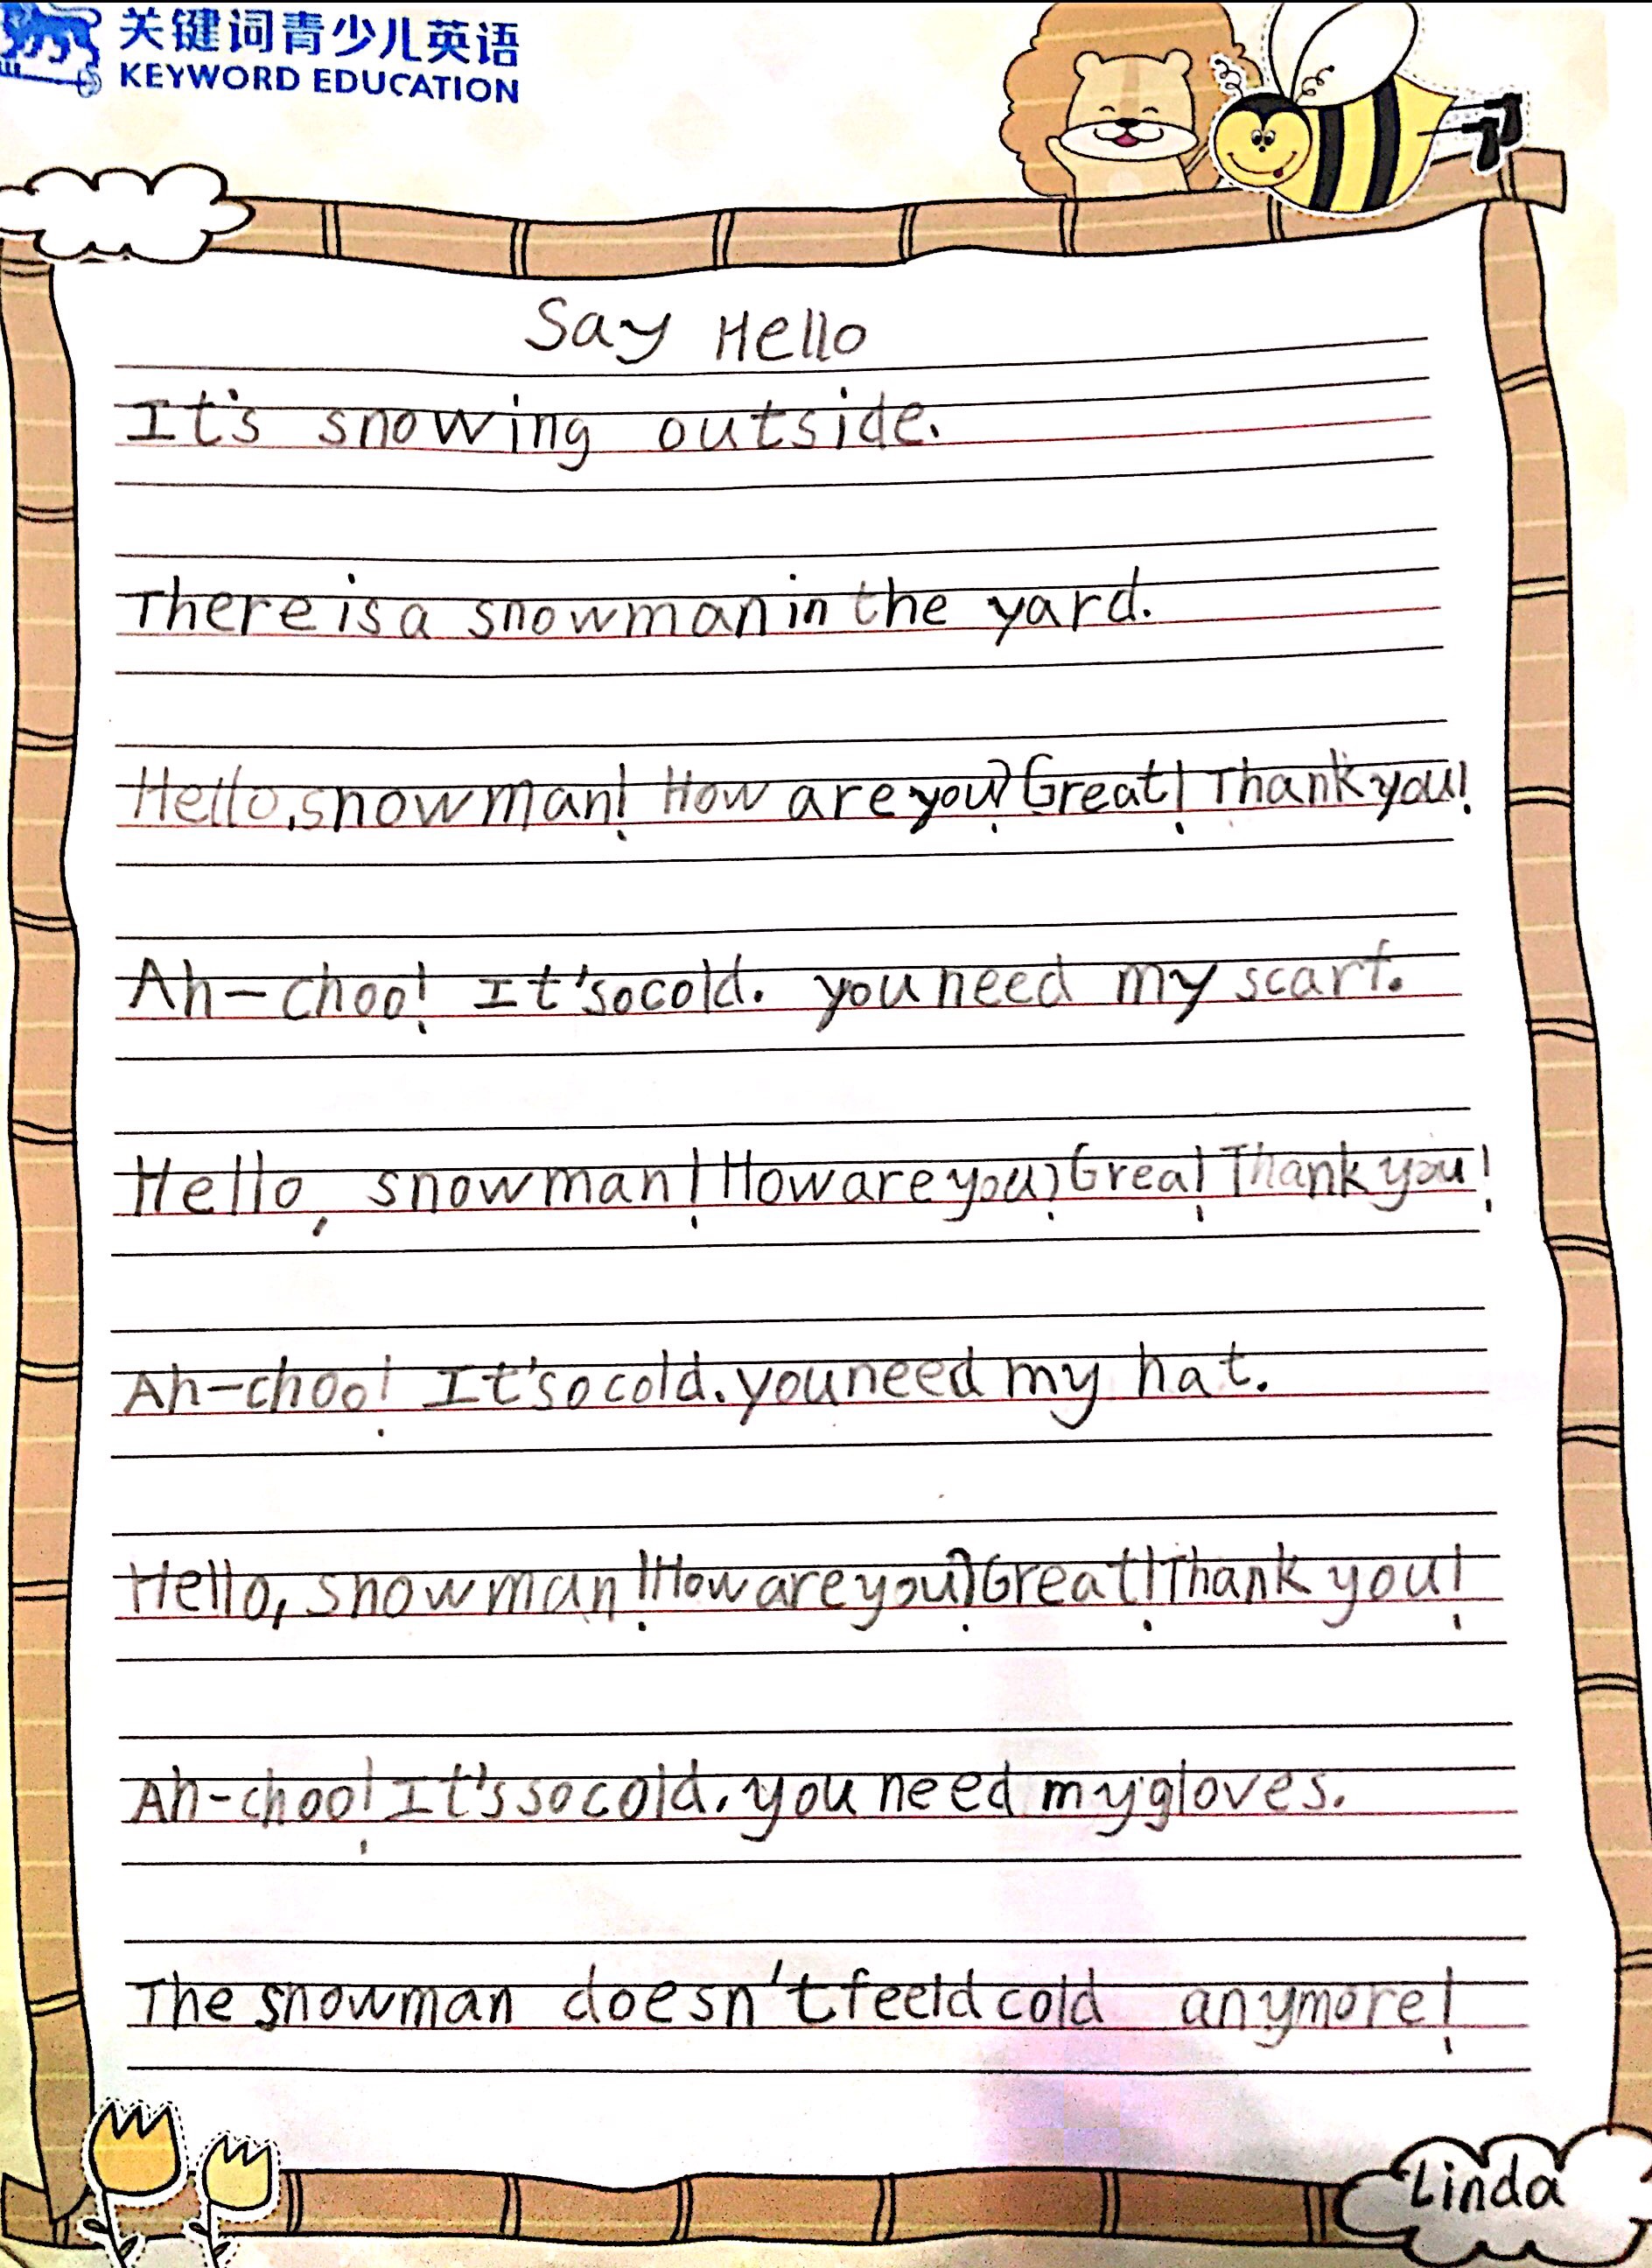 关键词青少儿英语
KEYWORD EDUCATION
Say Hello
It's snowing outside.
There is a snowman in the yard.
Hello, snowman! How are you? Great! Thank you!
Ah-choo! It'so cold. you need my scarf.
Hello, snowman! How are you? Grea! Thank you!
Ah-choo! It'so cold. you need my hat.
Hello, snowman! How are you? Great! Thank you!
Ah-choo! It's so cold. you need my gloves.
The snowman doesn't feeld cold anymore!
Linda